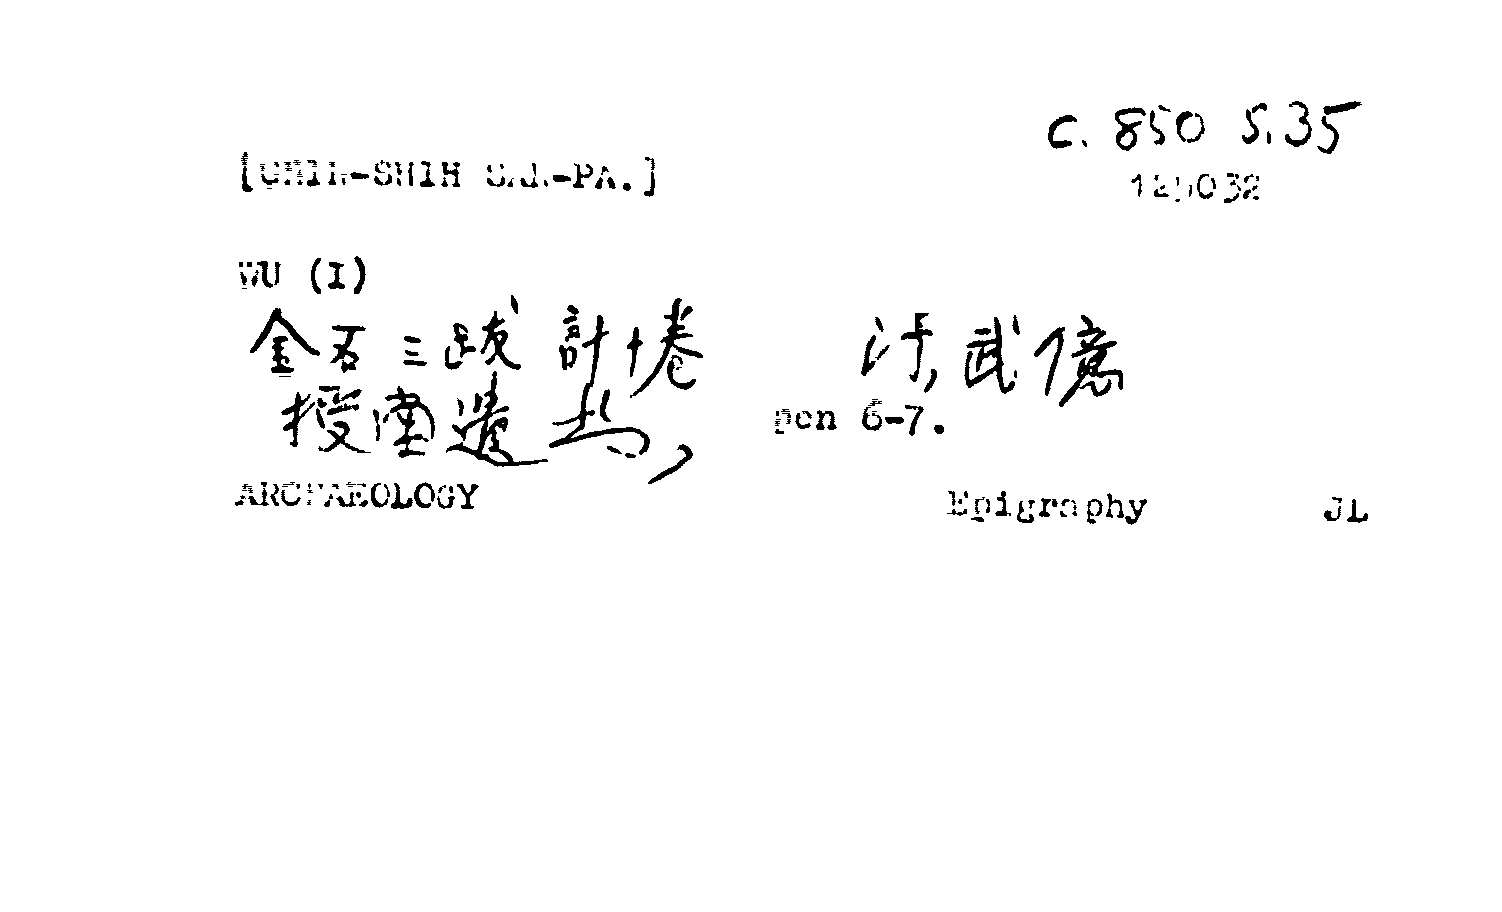 c. 850 S.35
[CHIN-SHIH SAN-PA.]
WU (I)
金石三跋 計十卷 清, 武億
授堂遺書, pen 6-7.
ARCHAEOLOGY Epigraphy JL